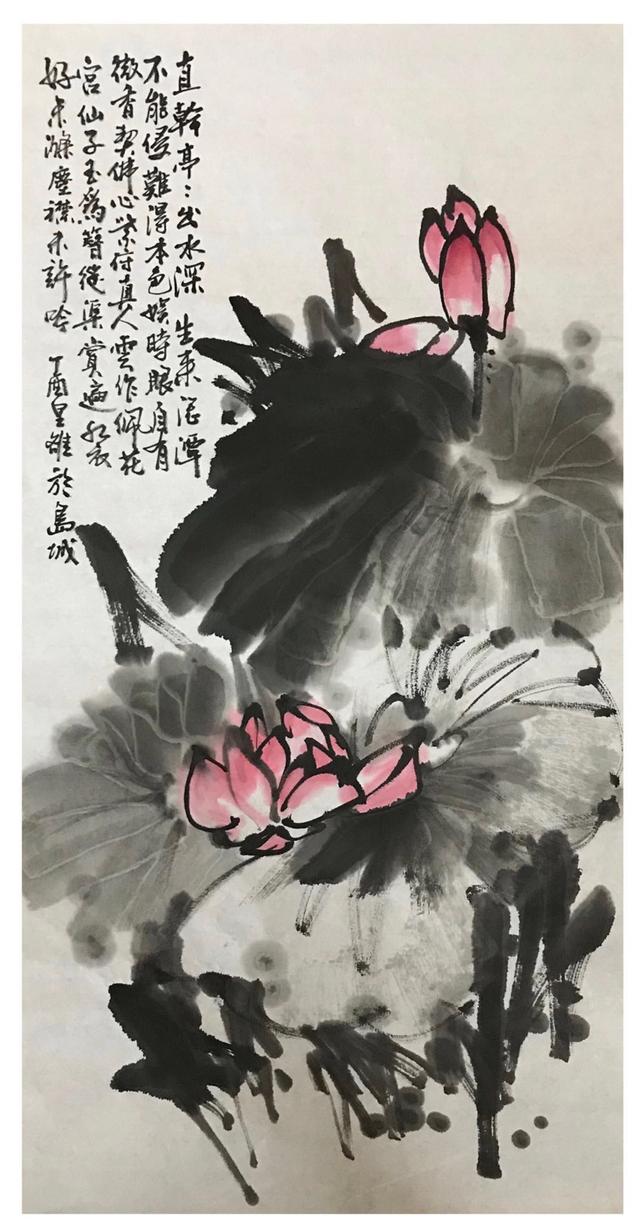 直幹亭〻出水深 生來泥潭
不能侵難得本色娛時眼自有
微香契佛心紫府真人雲作佩花
宮仙子玉為簪從渠賞遍紅衣
好未滌塵襟未許吟 丁酉 於島城